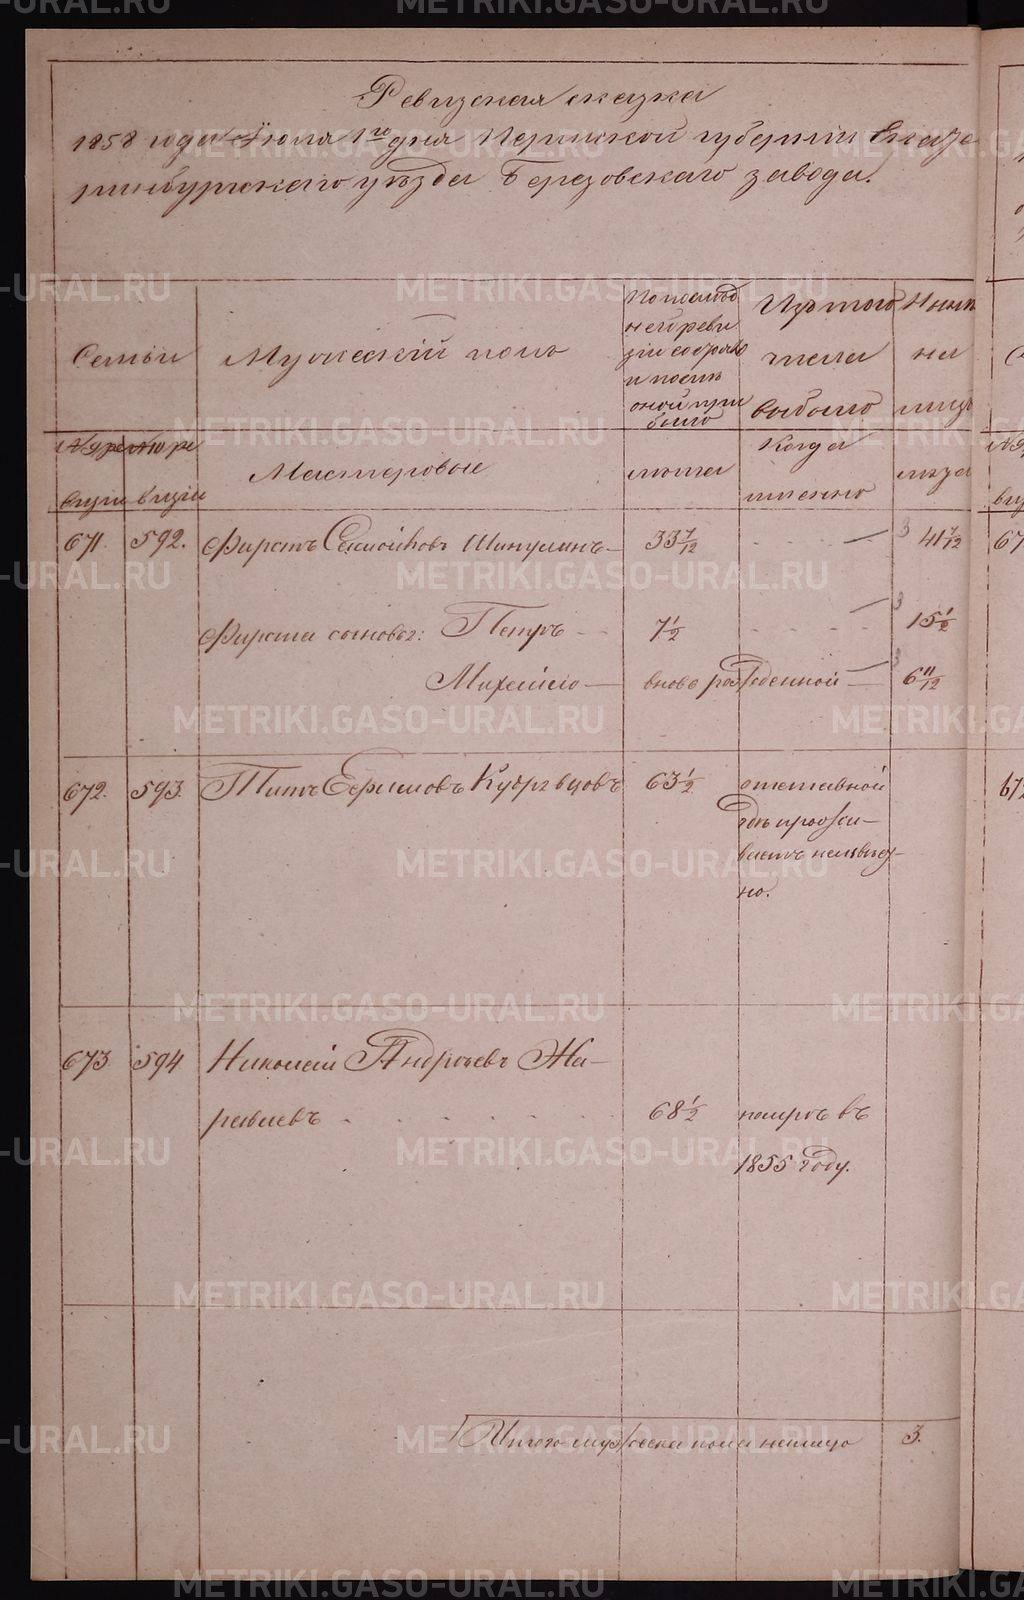 Ревизская сказка
1858 года Июля 1го дня Пермской губернiи Екате
ринбургскаго уѣзда Березовскаго завода.
Семьи
Мужескiй полъ
По послѣд
ней реви
зiи состояло
и послѣ
оной при
было
Изъ того
числа
выбыло
Нынѣ
на
лицо
№ ре
визiи
№ ре
визiи
Мастеровые
лѣта
Когда
именно
лѣта
671. 592. Фирсъ Семойловъ Шипулинъ 33 7/12 3 41 7/12
Фирса сыновья: Петръ 7 1/2 3 15 1/2
Михайло вновь рожденной 3 6 11/12
672. 593. Титъ Ефимовъ Кудрявцовъ 63 1/2 отставной
гдѣ прожи-
ваетъ неизвѣст-
но.
673. 594 Николай Андреевъ Жа-
равлевъ 68 1/2 померъ въ
1855 году.
Итого мужеска пола налицо 3.
METRIKI.GASO-URAL.RU